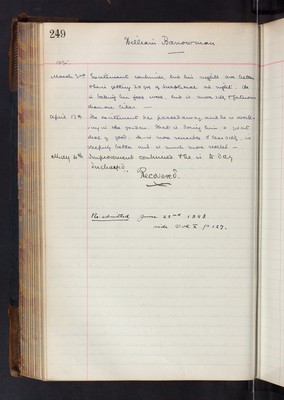 249
William Barrowman
March 2nd Excitement continues but his nights are better
chloral at night. He
is taking his food well, but is more
April 13th The excitement has passed away and he is work-
ing in the garden. That is doing him a great
deal of good. He is more sensible &
sleeping better and is much more settled —
May 4th Improvement continues & he is to day
discharged.
Recovered.
Re-admitted June 22nd 1898
vide Vol X p. 127.